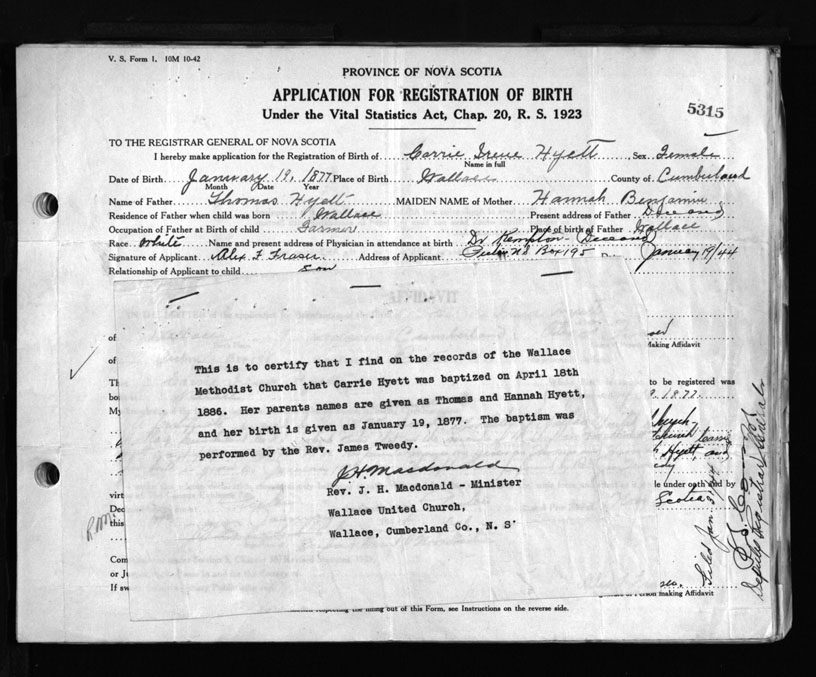 V. S. Form 1. 10M 10-42
PROVINCE OF NOVA SCOTIA
APPLICATION FOR REGISTRATION OF BIRTH
5315
Under the Vital Statistics Act, Chap. 20, R. S. 1923
TO THE REGISTRAR GENERAL OF NOVA SCOTIA
I hereby make application for the Registration of Birth of Carrie Irene Hyett, Sex Female
Name in full
Date of Birth January 19, 1877 Place of Birth Wallace County of Cumberland
Month Date Year
Name of Father Thomas Hyett MAIDEN NAME of Mother Hannah Benjamin
Residence of Father when child was born Wallace Present address of Father Deceased
Occupation of Father at Birth of child Farmer Place of birth of Father Wallace
Race White Name and present address of Physician in attendance at birth Dr Kempton - Deceased
Signature of Applicant Alex F Fraser Address of Applicant Pictou N S Box 195 January 19/44
Relationship of Applicant to child Son
Making Affidavit
This is to certify that I find on the records of the Wallace
Methodist Church that Carrie Hyett was baptized on April 18th
1886. Her parents names are given as Thomas and Hannah Hyett,
and her birth is given as January 19, 1877. The baptism was
performed by the Rev. James Tweedy.
J H Macdonald
Rev. J. H. Macdonald - Minister
Wallace United Church,
Wallace, Cumberland Co., N. S.
to be registered was
1877.
Hyett and
le under oath and by
Scotia
Filed Jan.
Deputy Registrar General
of
of
Th
bo
My
virt
Dec
this
Com
or Ju
If sw
Person making Affidavit
respecting the filling out of this Form, see Instructions on the reverse side.